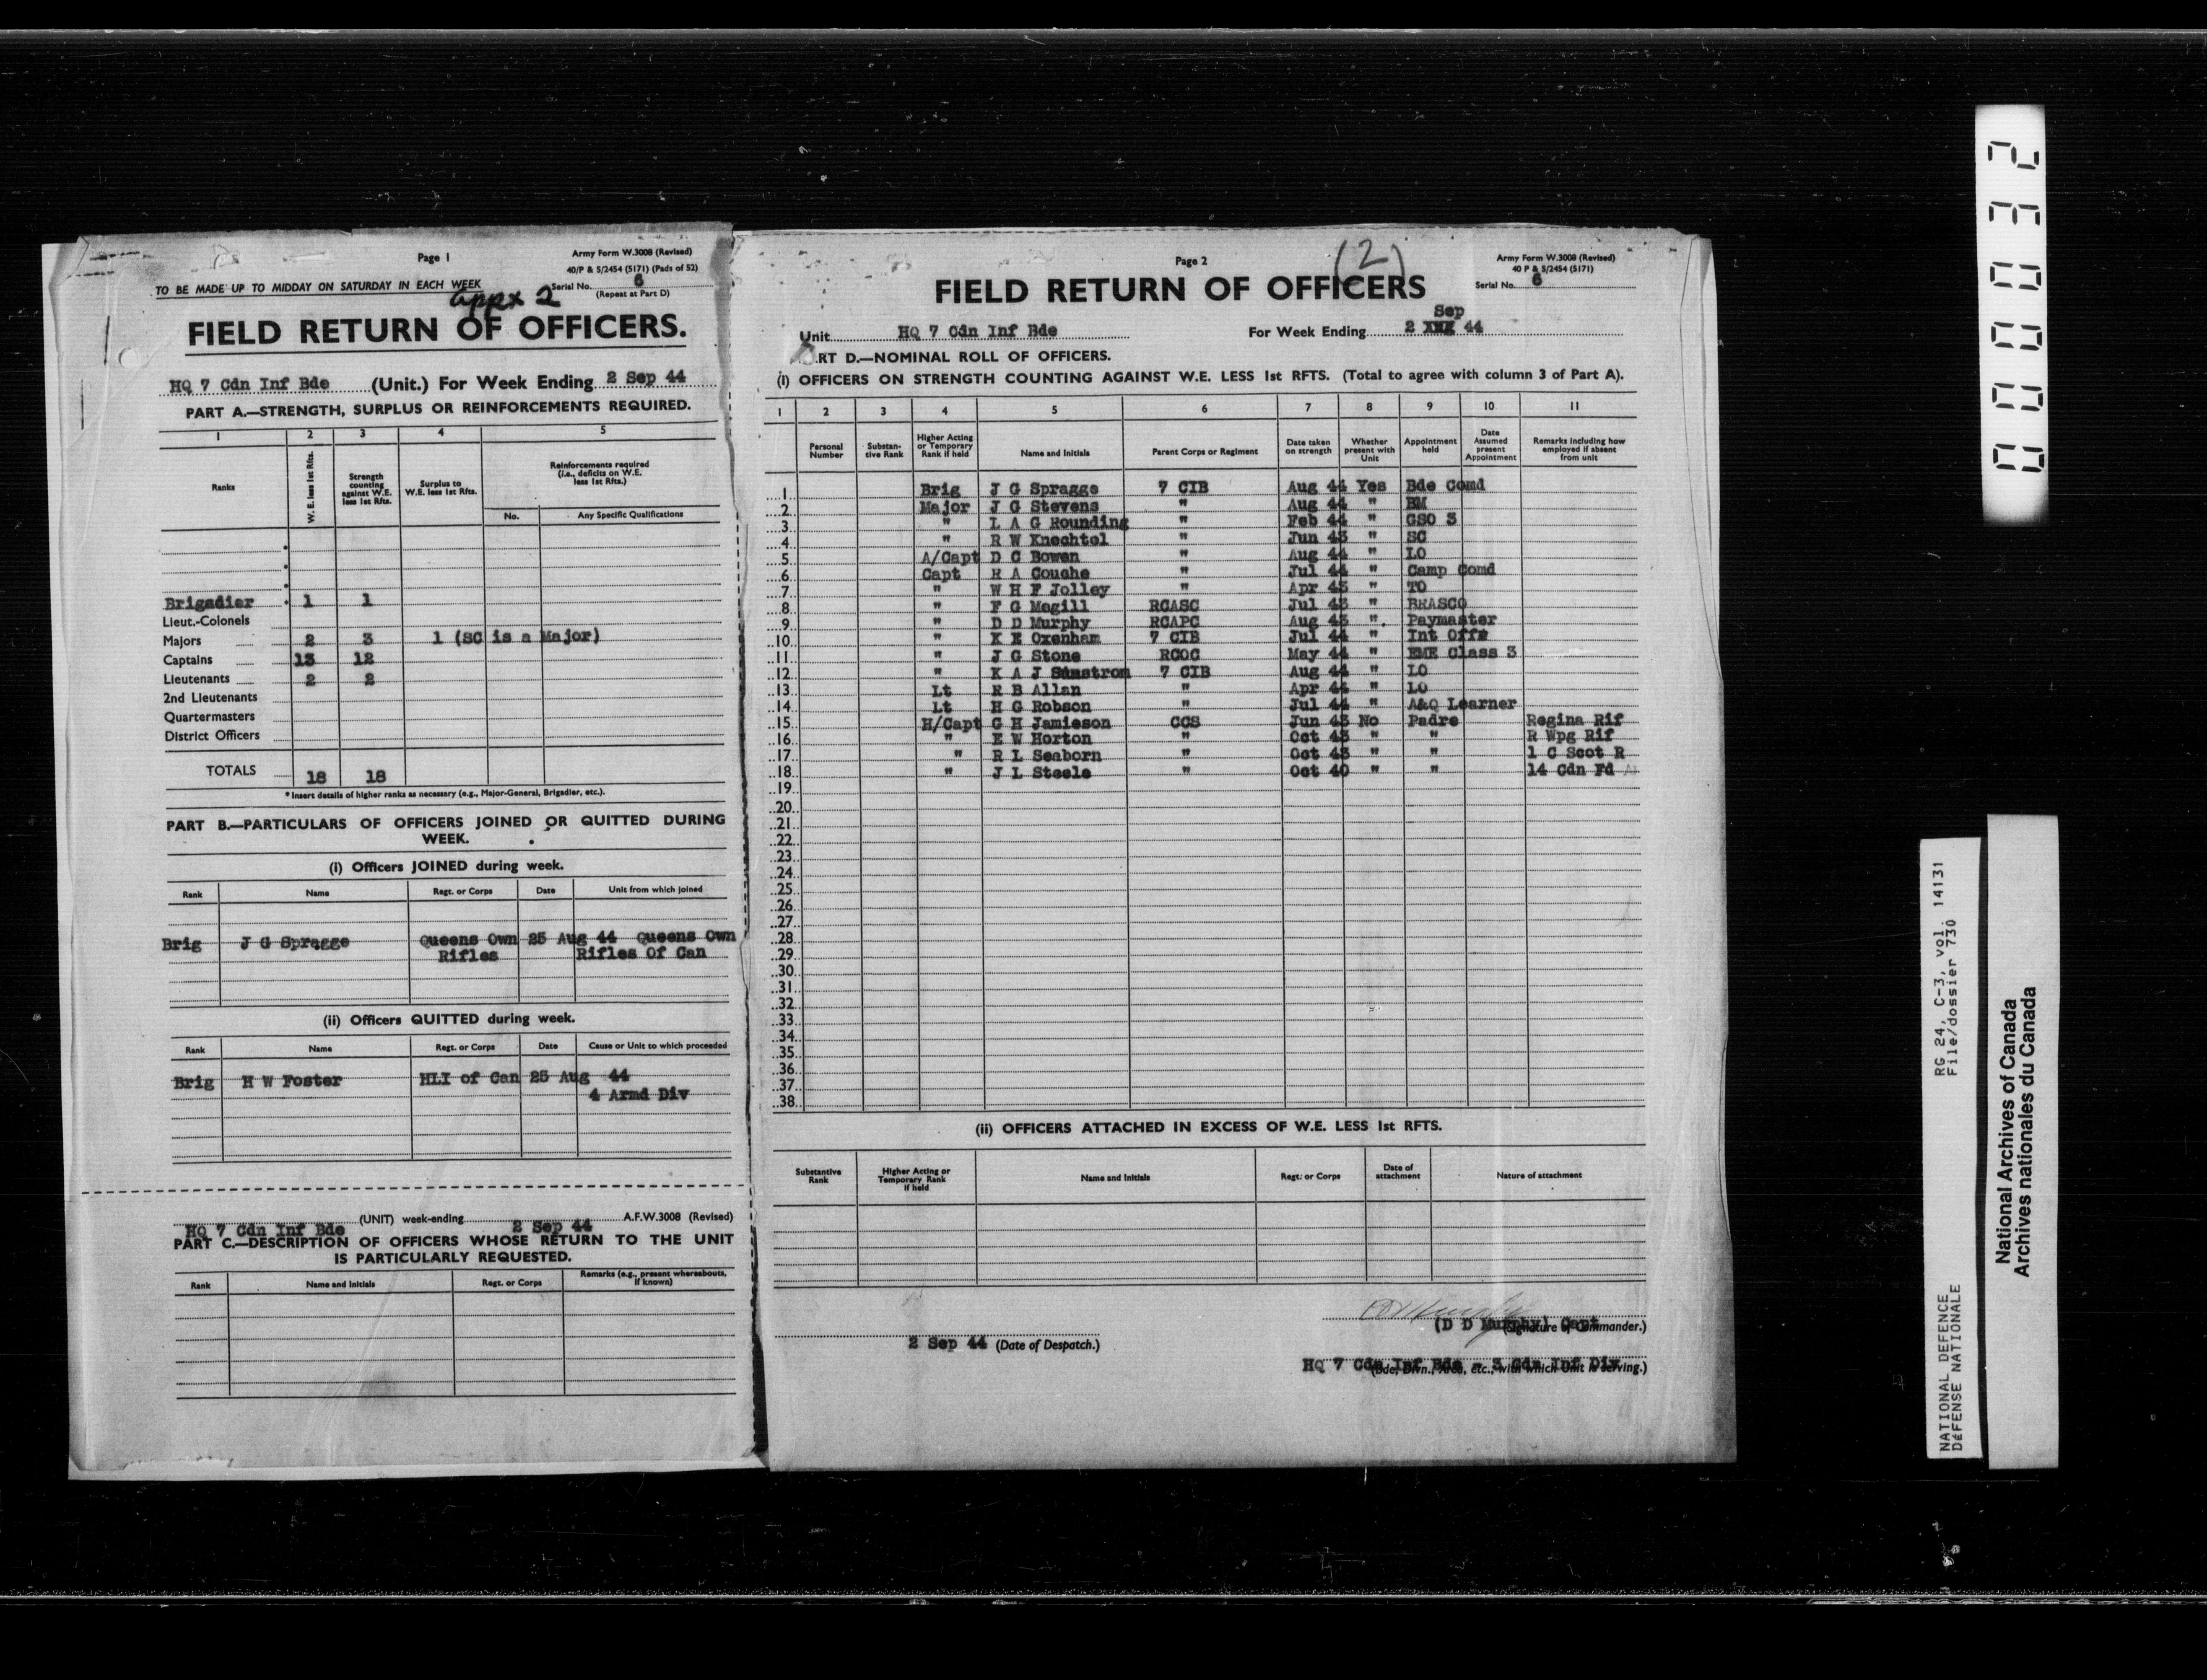 Page 1
Army Form W.3008 (Revised)
40/P & S/2454 (5171) (Pads of 52)
TO BE MADE UP TO MIDDAY ON SATURDAY IN EACH WEEK
Serial No. 6
(Repeat at Part D)
appx 2
FIELD RETURN OF OFFICERS.
HQ 7 Cdn Inf Bde (Unit.) For Week Ending 2 Sep 44
PART A.—STRENGTH, SURPLUS OR REINFORCEMENTS REQUIRED.
1 2 3 4 5
Ranks
W. E. less 1st Rfts.
Strength counting against W.E. less 1st Rfts.
Surplus to W.E. less 1st Rfts.
Reinforcements required (i.e., deficits on W.E. less 1st Rfts.)
No. Any Specific Qualifications
Brigadier 1 1
Lieut.-Colonels
Majors 2 3 1 (SC is a Major)
Captains 13 12
Lieutenants 2 2
2nd Lieutenants
Quartermasters
District Officers
TOTALS 18 18
* Insert details of higher ranks as necessary (e.g., Major-General, Brigadier, etc.).
PART B.—PARTICULARS OF OFFICERS JOINED OR QUITTED DURING
WEEK.
(i) Officers JOINED during week.
Rank Name Regt. or Corps Date Unit from which joined
Brig J G Spragge Queens Own 25 Aug 44 Queens Own
Rifles Rifles Of Can
(ii) Officers QUITTED during week.
Rank Name Regt. or Corps Date Cause or Unit to which proceeded
Brig H W Foster HLI of Can 25 Aug 44
4 Armd Div
HQ 7 Cdn Inf Bde (UNIT) week-ending 2 Sep 44 A.F.W.3008 (Revised)
PART C.—DESCRIPTION OF OFFICERS WHOSE RETURN TO THE UNIT
IS PARTICULARLY REQUESTED.
Rank Name and Initials Regt. or Corps Remarks (e.g., present whereabouts, if known)
Page 2
(2)
Army Form W.3008 (Revised)
40 P & S/2454 (5171)
Serial No. 6
FIELD RETURN OF OFFICERS
Sep
Unit HQ 7 Cdn Inf Bde For Week Ending 2 XXX 44
RT D.—NOMINAL ROLL OF OFFICERS.
(i) OFFICERS ON STRENGTH COUNTING AGAINST W.E. LESS 1st RFTS. (Total to agree with column 3 of Part A).
1 2 3 4 5 6 7 8 9 10 11
Personal Number
Substan-tive Rank
Higher Acting or Temporary Rank if held
Name and Initials
Parent Corps or Regiment
Date taken on strength
Whether present with Unit
Appointment held
Date Assumed present Appointment
Remarks including how employed if absent from unit
1 Brig J G Spragge 7 CIB Aug 44 Yes Bde Comd
2 Major J G Stevens " Aug 44 " BM
3 " L A G Rounding " Feb 44 " GSO 3
4 " R W Knechtel " Jun 43 " SC
5 A/Capt D C Bowen " Aug 44 " LO
6 Capt H A Couche " Jul 44 " Camp Comd
7 " W H F Jolley " Apr 43 " TO
8 " F G Megill RCASC Jul 43 " BRASCO
9 " D D Murphy RCAPC Aug 43 " Paymaster
10 " K E Oxenham 7 CIB Jul 44 " Int Offr
11 " J G Stone RCOC May 44 " EME Class 3
12 " K A J Sunstrom 7 CIB Aug 44 " LO
13 Lt R B Allan " Apr 44 " LO
14 Lt H G Robson " Jul 44 " A&Q Learner
15 H/Capt G H Jamieson CCS Jun 43 No Padre Regina Rif
16 " E W Horton " Oct 43 " " R Wpg Rif
17 " R L Seaborn " Oct 43 " " 1 C Scot R
18 " J L Steele " Oct 40 " " 14 Cdn Fd
19
20
21
22
23
24
25
26
27
28
29
30
31
32
33
34
35
36
37
38
(ii) OFFICERS ATTACHED IN EXCESS OF W.E. LESS 1st RFTS.
Substantive Rank
Higher Acting or Temporary Rank if held
Name and Initials
Regt. or Corps
Date of attachment
Nature of attachment
(D D Murphy) Capt
(Signature of Commander.)
2 Sep 44 (Date of Despatch.)
HQ 7 Cdn Inf Bde - 3 Cdn Inf Div
(Bde, Divn., Area, etc., with which Unit is serving.)
00032
RG 24, C-3, vol. 14131
File/dossier 730
NATIONAL DEFENCE
DÉFENSE NATIONALE
National Archives of Canada
Archives nationales du Canada